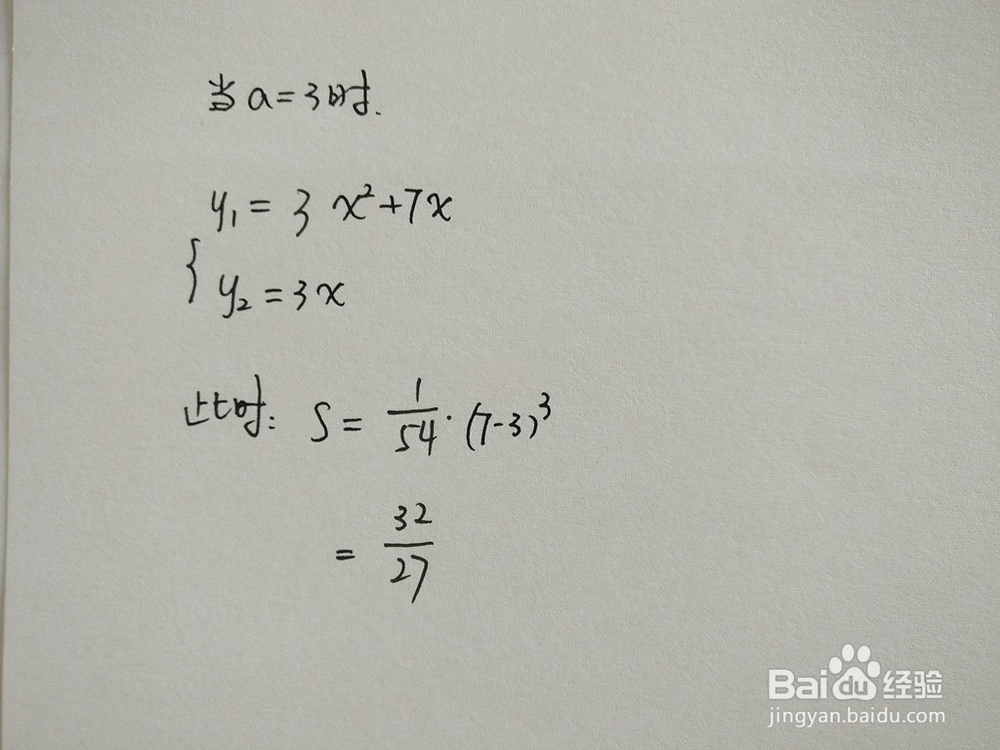 当a=3时.
y₁=3x²+7x
{
y₂=3x
此时: S=1/54·(7-3)³
=32/27
Baidu经验
jingyan.baidu.com